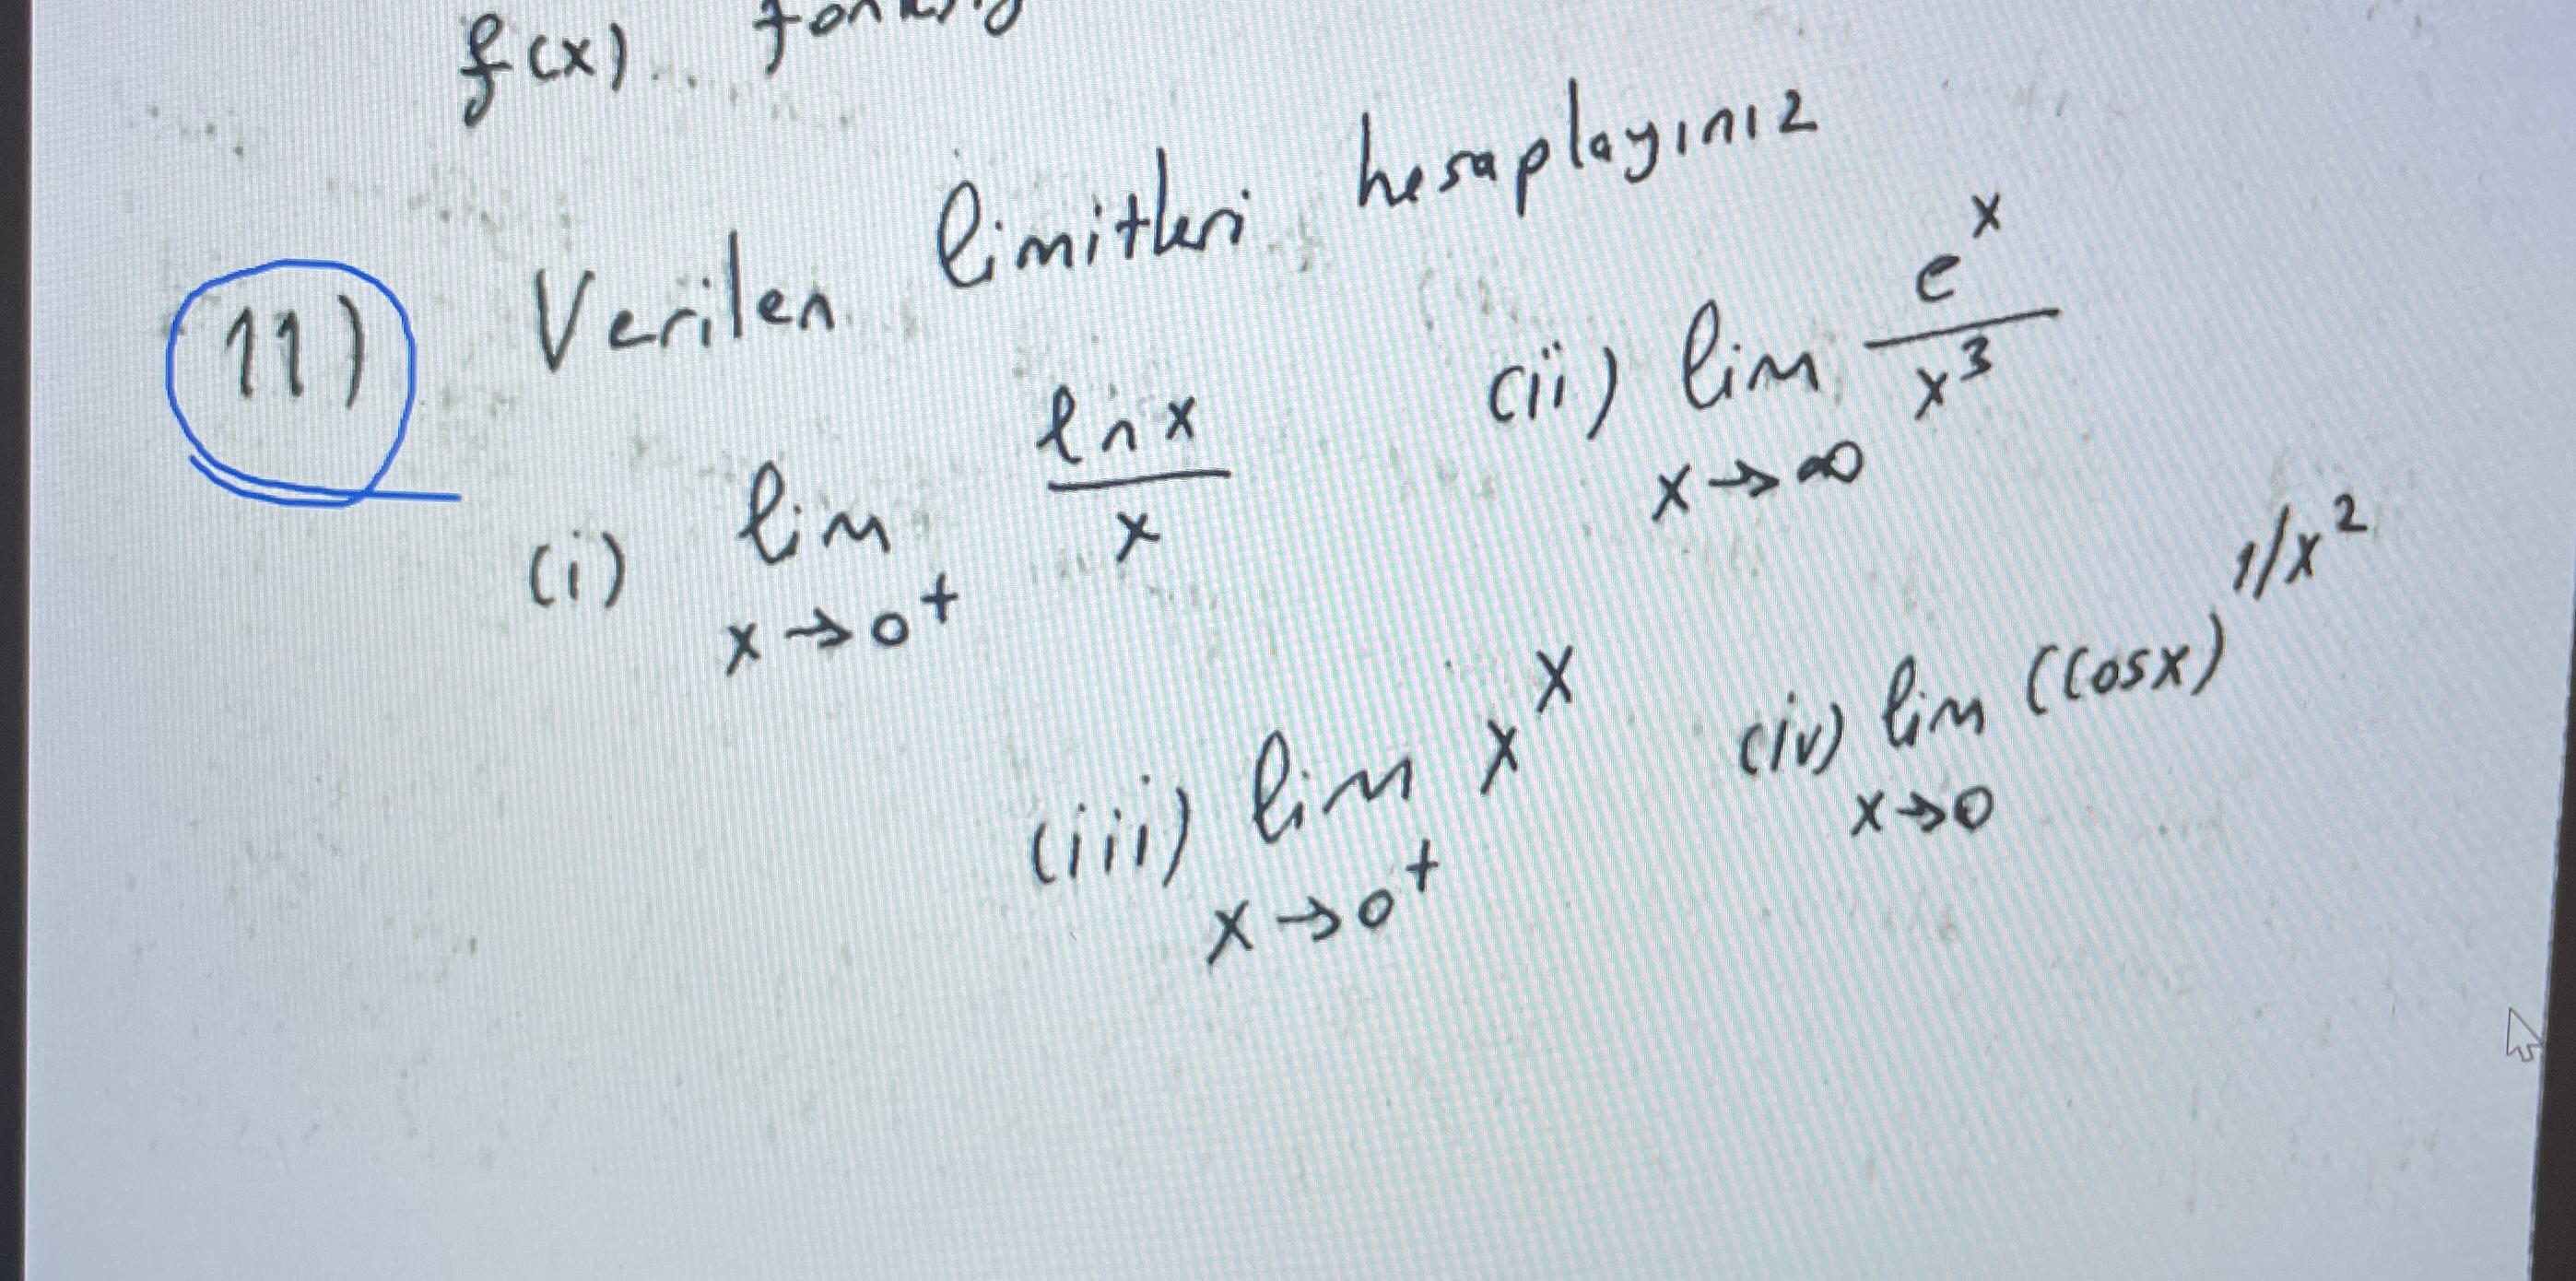 f(x)
11) Verilen limitleri hesaplayınız
(i) lim x→0⁺ ln x / x (ii) lim x→∞ e^x / x³
(iii) lim x→0⁺ x^x (iv) lim x→0 (cosx)^1/x²